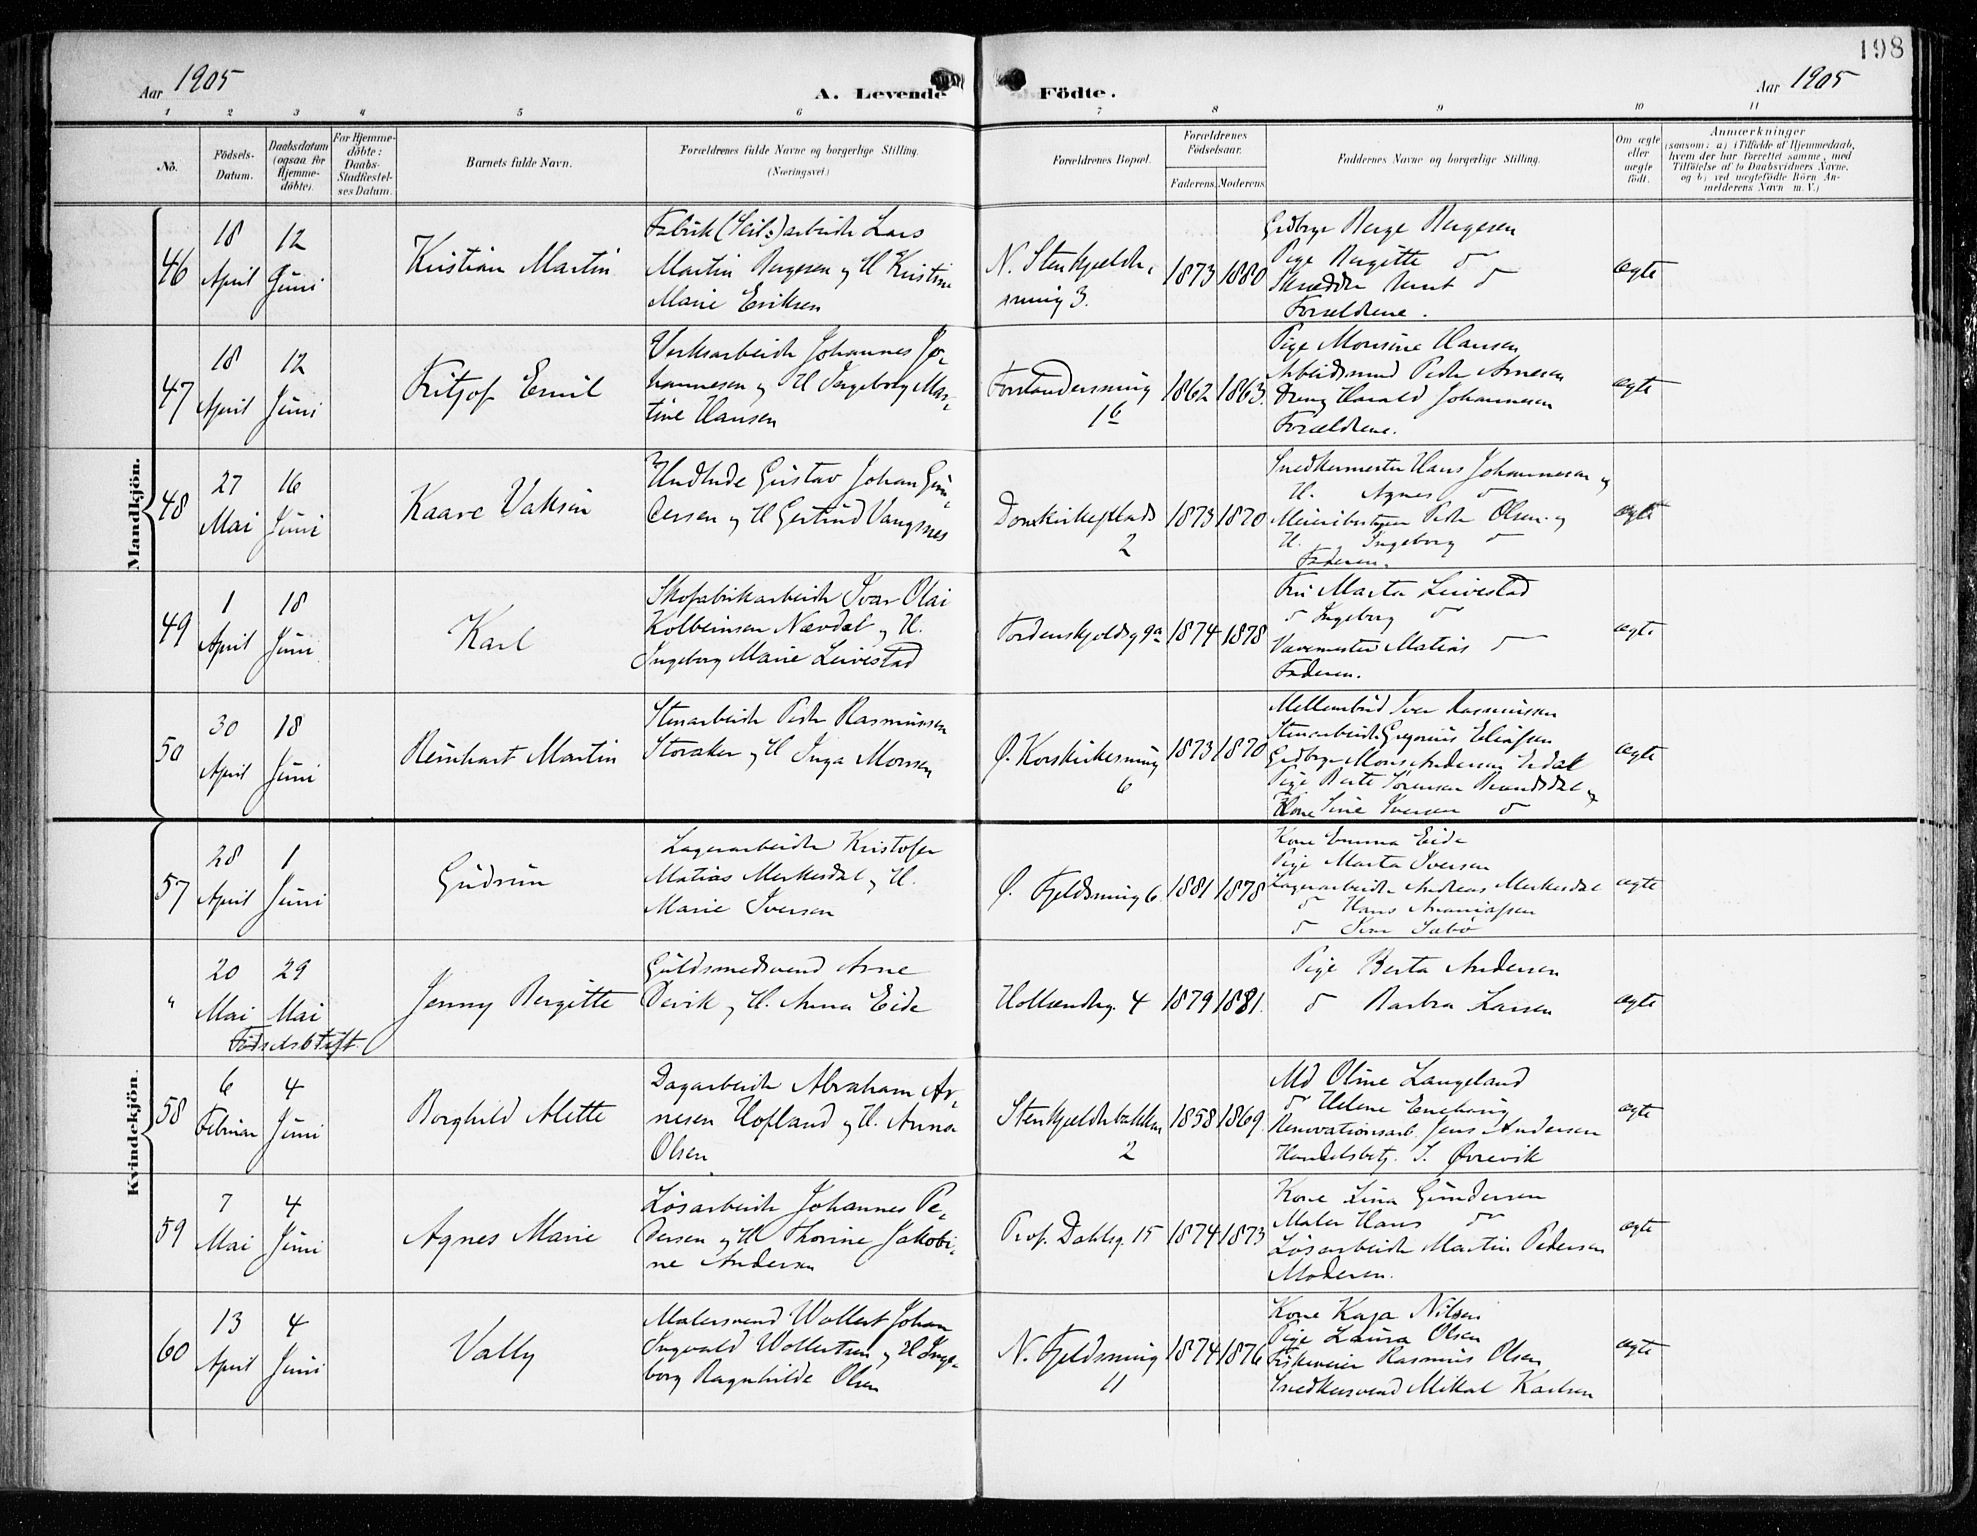 198
Aar 1905
A. Levende Födte.
Aar 1905
1 2 3 4 5 6 7 8 9 10 11
No.
Födsels-
Datum.
Daabsdatum
(ogsaa for
Hjemme-
döbte).
For Hjemme-
döbte:
Daabs-
Stadfæstel-
ses Datum.
Barnets fulde Navn.
Forældrenes fulde Navne og borgerlige Stilling.
(Næringsvei.)
Forældrenes Bopæl.
Forældrenes
Födselsaar.
Faderens. Moderens.
Faddernes Navne og borgerlige Stilling.
Om ægte
eller
uægte
födt.
Anmærkninger
(saasom: a) i Tilfælde af Hjemmedaab,
hvem der har forrettet samme, med
Tilföielse af to Daabsvidners Navne,
og b) ved uægtefödte Börn An-
melderens Navn m. V.)
Mandkjön.
46
18
April
12
Juni
Kristian Martin
Fabrik (Seil:) arbeider Lars
Martin Bergesen og H Kristine
Marie Eriksen
N. Stenkjelder,
smug 3.
1873 1880
Berge Bergesen
Pige Bergitte do
Skrædder do
Forældrene.
ægte
47
18
April
12
Juni
Fritjof Emil
Verksarbeider Johannes Jo-
hannesen og H Ingeborg Mar-
tine Hansen
Forstandersmug
16
1862 1863.
Pige Monsine Hansen
Arbeidsmand Peder Arnesen
Dreng Harald Johannesen
Forældrene.
ægte
48
27
Mai
16
Juni
Kaare Vaksin
Gustav Johan Gun-
dersen og H Gertrud Vangsnes
Domkirkeplads
2
1873 1870
Snedkermester Hans Johannesen og
H. Agnes do
Meieribestyrer Peder Olsen og
H. Ingeborg do
Faderen.
ægte
49
1
April
18
Juni
Karl
Skofabrikarbeider Ivar Olai
Kolbeinsen Nævdal og H.
Ingeborg Marie Leivestad
Tordenskjoldsg 9a
1874 1878
Fru Marta Leivestad
do Ingeborg do
Matias do
Faderen.
ægte
50
30
April
18
Juni
Reinhart Martin
Stenarbeider Peder Rasmussen
Storaker og H Inga Monsen
Ø. Korskirkesmug
6
1873 1870
Iver Rasmussen
Stenarbeider Gregorius Eliassen
Mons Andersen Eidal
Pige Berte Sørensen
Kone Sine Iversen do
ægte
Kvindekjön.
57
28
April
1
Juni
Gudrun
Lagerarbeider Kristofer
Matias Merkesdal og H.
Marie Iversen
Ø. Fjeldsmug 6
1881 1878
Kone Emma Eide
Pige Marta Iversen
Lagerarbeider Andreas Merkesdal
do Hans Ananiassen
do
ægte
"
20
Mai
29
Mai
Jenny Bergitte
Guldsmedsvend Arne
Devik og H. Anna Eide
Hollenderg. 4
1879 1881.
Pige Berta Andersen
do Barbra Larsen
ægte
Födselsstift.
58
6
Februar
4
Juni
Borghild Alette
Dagarbeider Abraham Ar-
nesen Hofland og H. Anna
Olsen
Stenkjelderbakken
2
1858 1869.
Md Oline Langeland
do Helene Enehaug
Renovationsarb. Jens Andersen
Handelsbetj. I. Øvrevik
ægte
59
7
Mai
4
Juni
Agnes Marie
Løsarbeider Johannes Pe-
dersen og H Thorine Jakobi-
ne Andersen
Prof. Dahlsg. 15
1874 1873
Kone Lina Gundersen
Maler Hans do
Løsarbeider Martin Pedersen
Moderen.
ægte
60
13
April
4
Juni
Vally
Malersvend Wollert Johan
Ingvald Wollertsen og H Inge-
borg Ragnhilde Olsen
N. Fjeldsmug
11
1874 1876
Kone Kaja Nilsen
Pige Laura Olsen
Fiskeveier Rasmus Olsen
Snedkersvend Mikal Karlsen
ægte